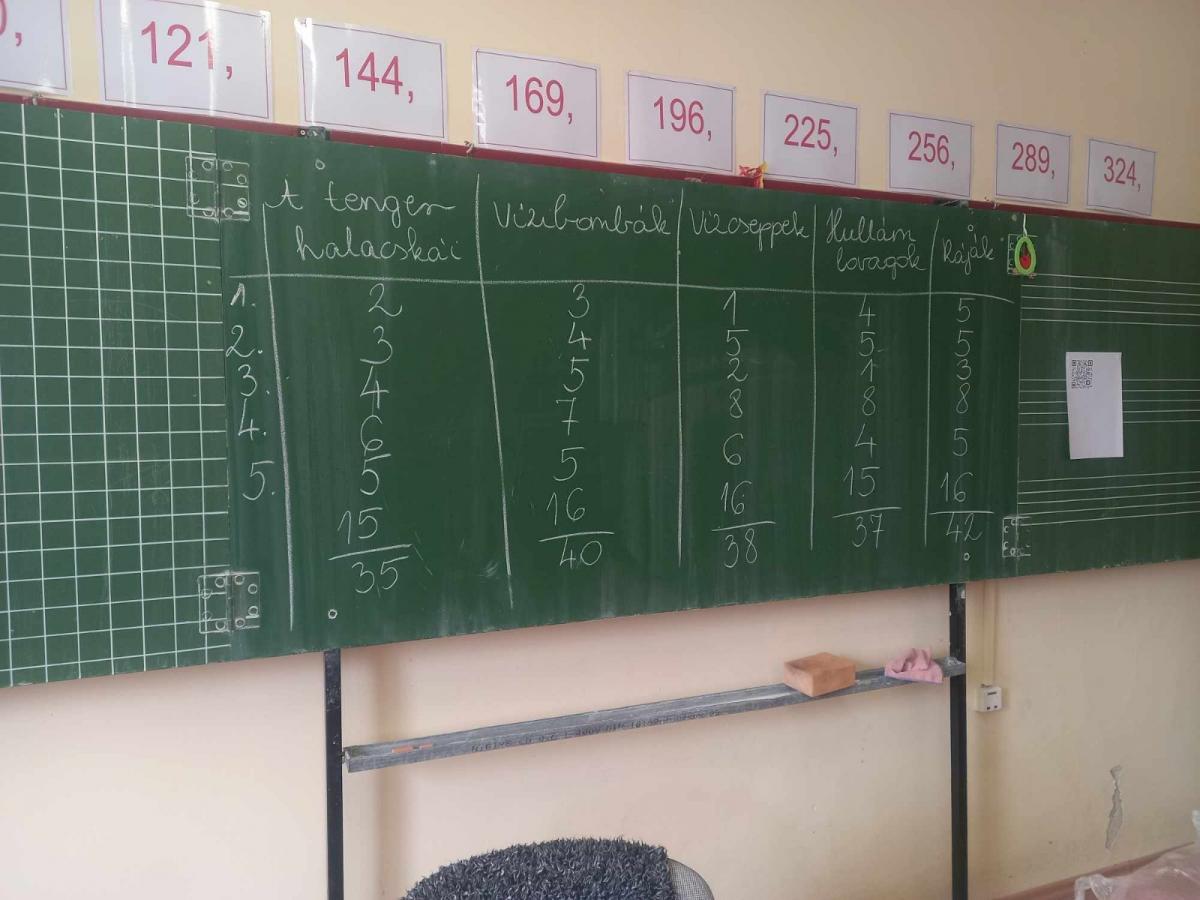 0,
121,
144,
169,
196,
225,
256,
289,
324,
A tenger halacskái Vízibombák Vízcseppek Hullám lovagok Ráják
1. 2 3 1 4 5
2. 3 4 5 5 5
3. 4 5 2 1 3
4. 6 7 8 8 8
5. 5 5 6 4 5
15 16 16 15 16
35 40 38 37 42